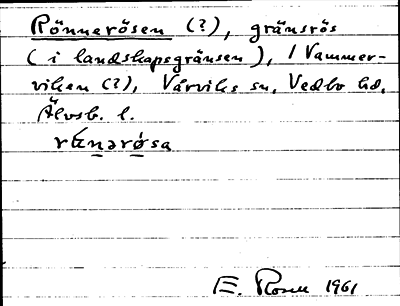 Rönnerösen (?), gränsrös
(i landskapsgränsen), / Vammer-
viken (?), Vårviks sn, Vedbo hd,
Älvsb. l.
rǿnərǿsa
E. Rosell 1961